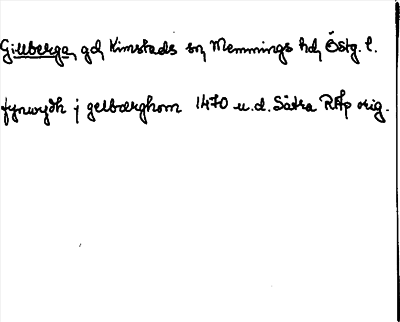 Gillberga, gd, Kimstads sn, Memmings hd, Östg. l.
fyrwydh j gelbærghom 1470 u.d. Sätra RAp orig.